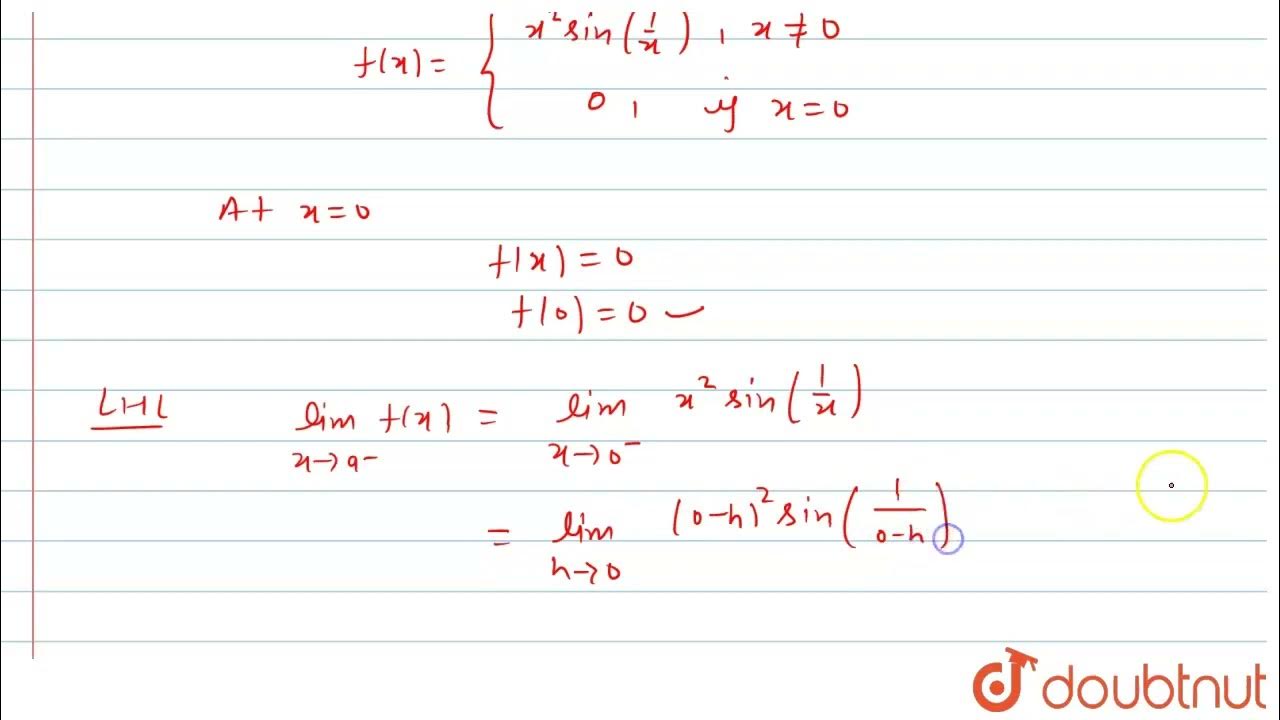 f(x) = { x² sin(1/x) , x ≠ 0
0 , if x = 0
At x = 0
f(x) = 0
f(0) = 0
LHL lim x→a⁻ f(x) = lim x→0⁻ x² sin(1/x)
= lim h→0 (0-h)² sin(1/(0-h))
doubtnut